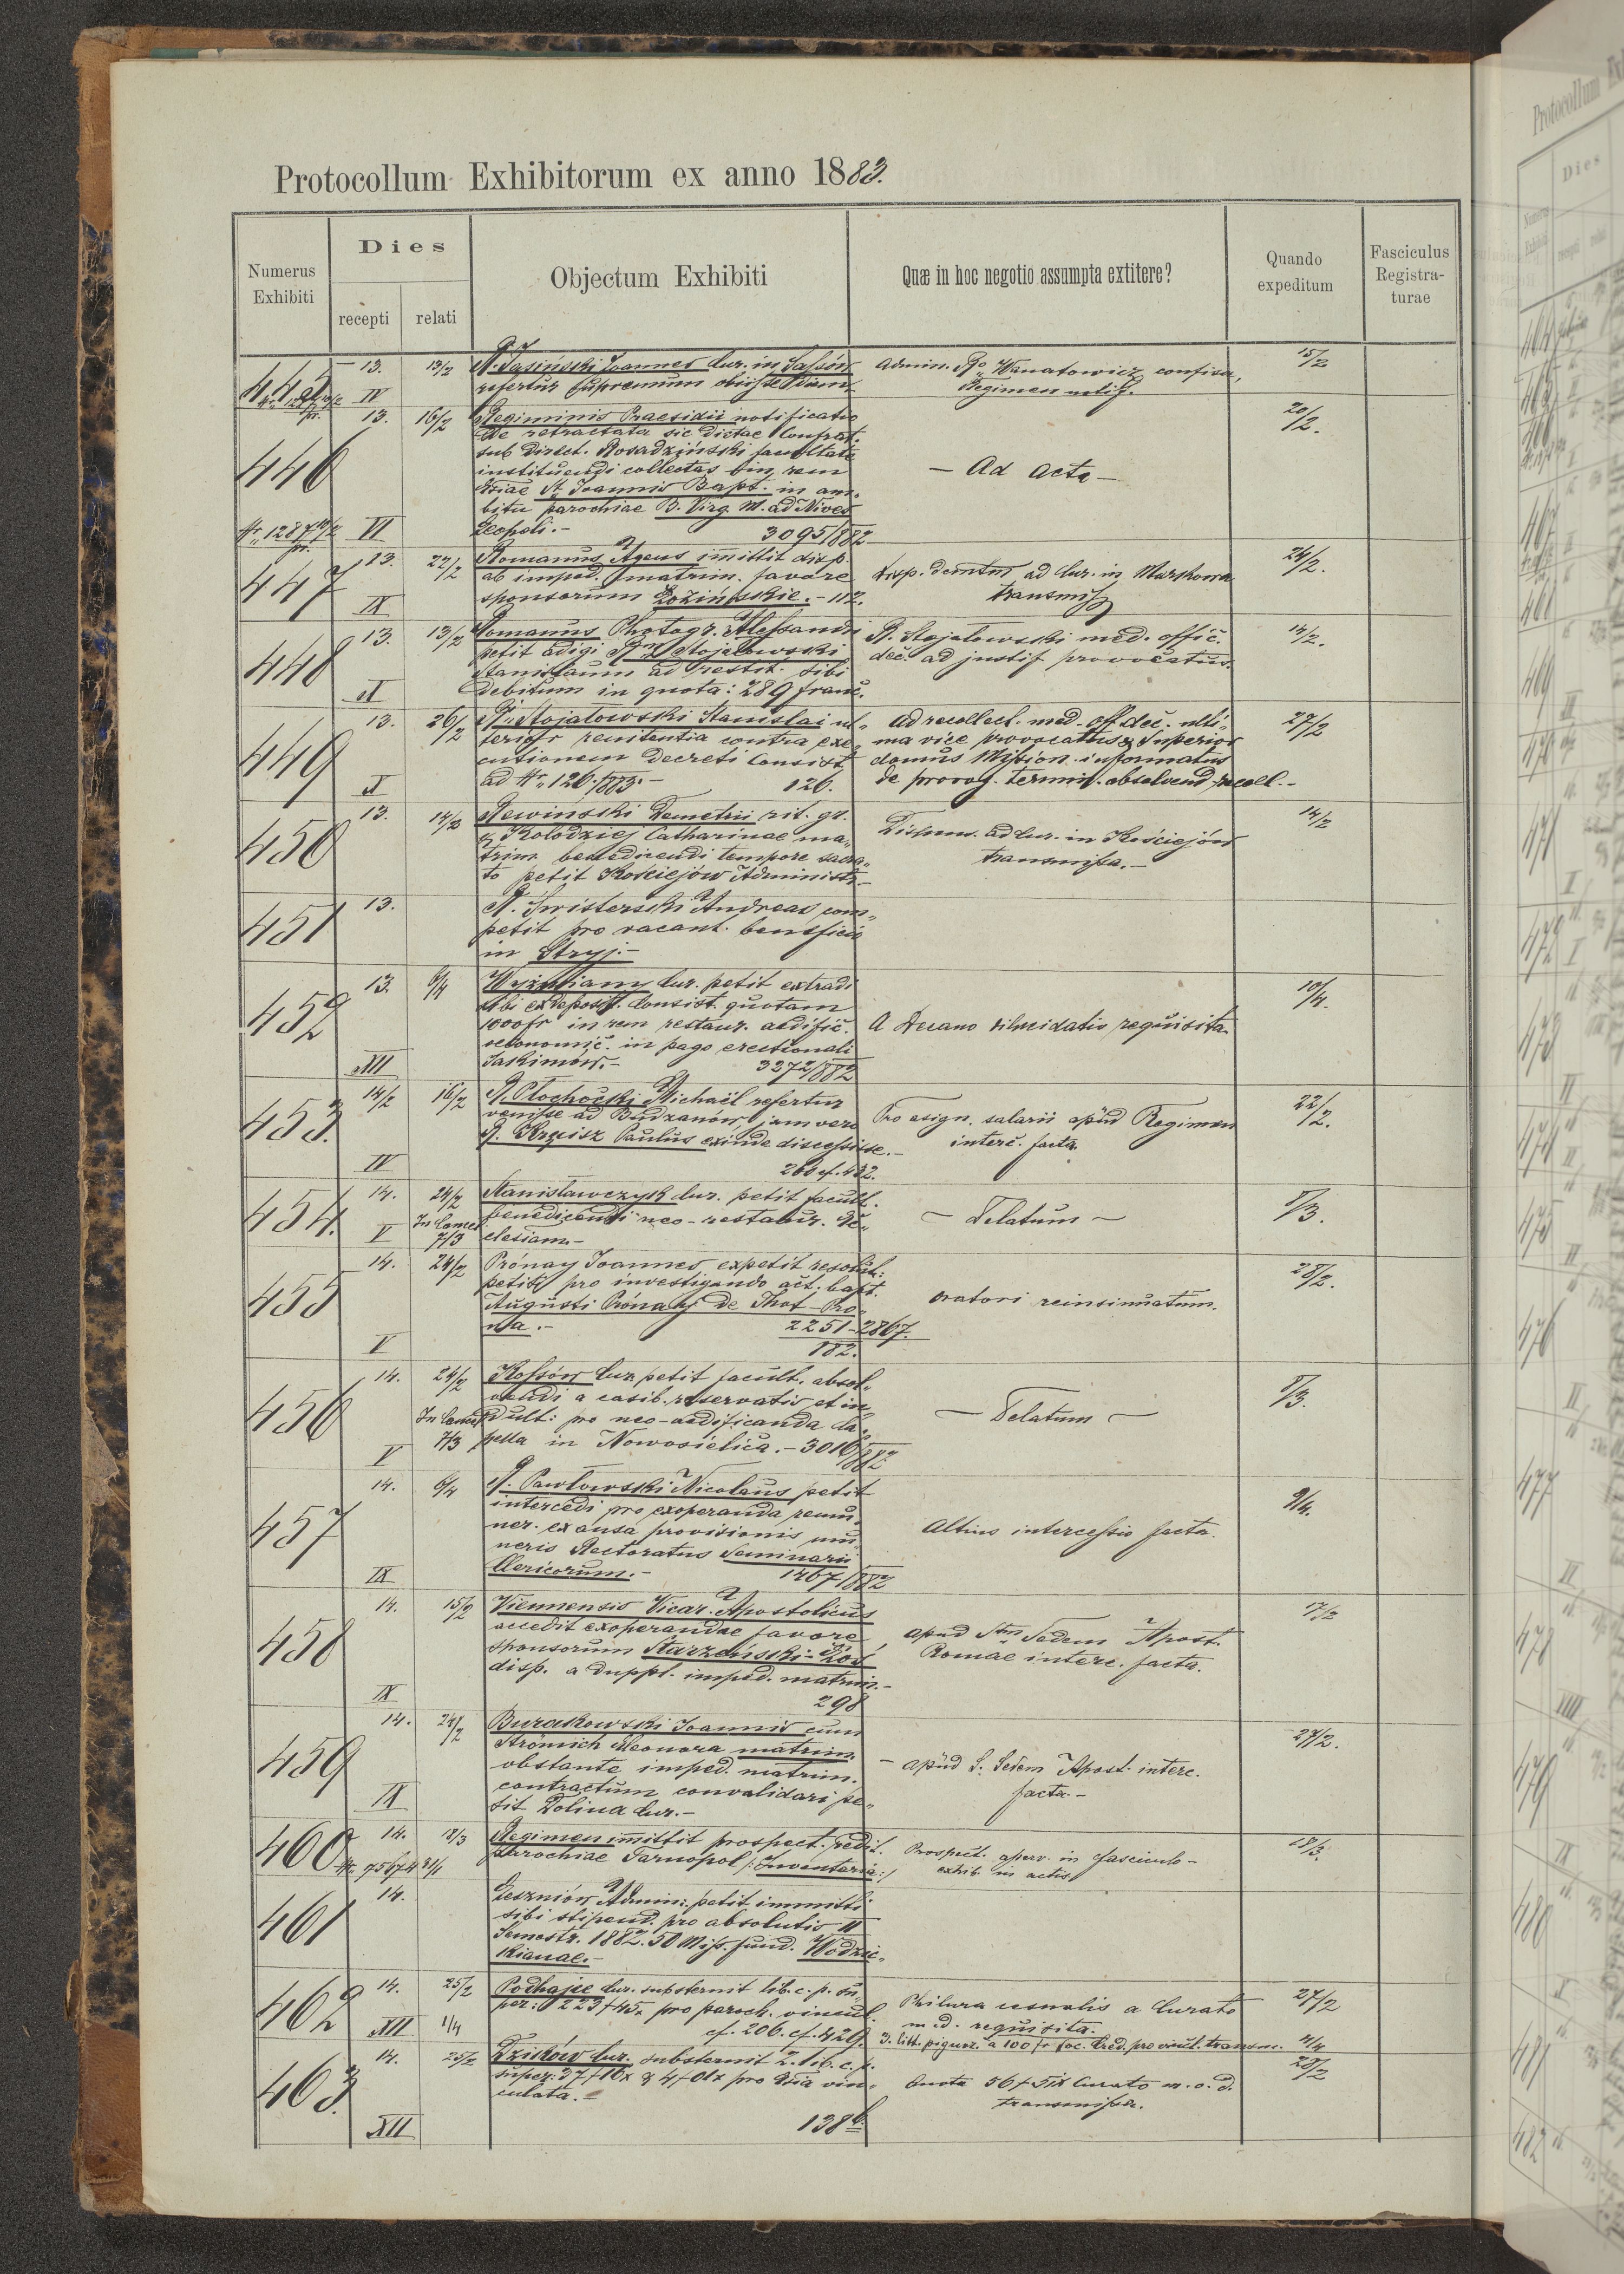 Protocollum Exhibitorum ex anno 1883.
Numerus Exhibiti
Dies
recepti
relati
Objectum Exhibiti
Quæ in hoc negotio assumpta extitere?
Quando expeditum
Fasciculus Registra-turae
445 13. 13/2 IV
R. Jasiński Joannes Cur. in Sassów
refertur supremum obiisse diem
Admin. Wanatowicz confisa,
Regimen notif.
15/2
446 13. 16/2
Regiminis Praesidii notificatio
de retractata sic dictae Confrat.
sub Direct. Rosadziński facultate
instituendi collectas in rem
Edsiae St. Joannis Bapt. in am„
bitu parochiae B. Virg. M. ad Nives
Leopoli.- 3095/882
VI
— Ad acta —
20/2.
447 13. 22/2 IX
Romanus Agens imittit disp.
ab imped. matrim. favore
sponsorum Łoziński.- 112.
disp. ad Cur. in Markowa
transmiss
24/2.
448 13. 13/2 X
Romanus Photogr. Alessandri
petit adigi Stojałowski
Stanislaum ad restit. sibi
debitum in quota: 289 franc.
R. Stojałowski med. offic.
dec. ad justif provocatus.
14/2.
449 13. 26/2 X
R. Stojałowski Stanislai ul„
terior renitentia contra exe„
cutionem Decreti Consist
ad Nr. 120/883.- 120.
ad recollect. med. off. dec. ulti„
ma vice provocatus & Superior
domus Mission. informatus
de prorog. termin. absolvend recoll.-
27/2
450 13. 14/2
Rewiński Demetrii rit. gr.
& Kołodziej Catharinae ma„
trim. benedicendi tempore sacra„
to petit Kościejów Administr.-
Dispens. ad Cur. in Kościejów
transmissa.-
14/2
451 13.
R. Świsterski Andreas com„
petit pro vacant. beneficio
in Stryj.-
452 13. 6/4 XII
Wyżniany Cur. petit extradi
sibi ex deposit. Consist. quotam
1000 fr in rem restaur. aedific.
oeconomic. in pago erectionali
Jakimów.- 3272/882
A Decano dilucidatio requisita.
10/4.
453. 14/2 16/2 IV
R. Płochocki Michaël refertur
venisse ad Budzanów, jam vero
R. Krzisz Paulus exinde discessisse.-
260 cf. 432.
Pro asign. salarii apud Regimen
interc. facta.
22/2.
454. 14. 24/2 V In Cancel 7/3
Stanisławczyk Cur. petit facult.
benedicendi neo-restaur. Ec„
clesiam.-
— Delatum —
8/3.
455 14. 24/2 V
Prónay Joannes expetit resolut.
petiti pro investigando act. bapt.
Augusti Prónay de Thot-Pro„
na.- 2251-2867.
182.
Oratori reinsinuatum.
28/2.
456 14. 24/2 In Cancel 7/3 V
Kossów Cur. petit facult. absol„
vendi a casib. reservatis et in„
dult: pro neo-aedificanda Ca„
pella in Nowosielica.- 3016/882
— Delatum —
8/3.
457 14. 6/4 IX
R. Pawłowski Nicolaus petit
intercedi pro exoperanda remu„
ner. ex ausa provisionis mu„
neris Rectoratus Seminarii
Clericorum.- 1467/882
Altius intercessio facta.
9/4.
458 14. 15/2 IX
Viennensis Vicar. Apostolicus
accedit exoperandae favore
sponsorum Starzeński-Łoś
disp. a duppl. imped. matrim.-
298
apud Stm Sedem Apost.
Romae interc. facta.
17/2
459 14. 24/2 IX
Burakowski Joannis cum
Strömich Eleonora matrim.
obstante imped. matrim.
contractum convalidari pe„
tit Dolina Cur.-
— apud S. Sedem Apost. interc.
facta.-
27/2.
460 14. 18/3
Regimen imittit prospect. redit.
parochiae Tarnopol /:Inventaria:/
Prospect. aperv. in fasciculo-
exhib. in actis
18/3.
461 14.
Leszniów Admin: petit immitti
sibi stipend. pro absolutis II
Semestr. 1882. 50 Miss. fund. Wodzic„
kianae.-
462 14. 25/2 XII 1/4
Podhajce Cur. substernit lib. c. p. su„
per: 223f 45x pro paroch. vincul.
cf. 206. cf. 429.
Philura usualis a Curato
m. d. requisita.
3. litt. pignor. a 100 fr soc. Cred. pro vincl. transm.
27/2
4/4
463. 14. 25/2 XII
Dzików Cur. substernit 2. lib. c. p.
super: 37f 10x & 4f 01x pro Edsia vin„
culata.-
138
Quota 56f 51x Curato m. o. d.
transmissa.
28/2